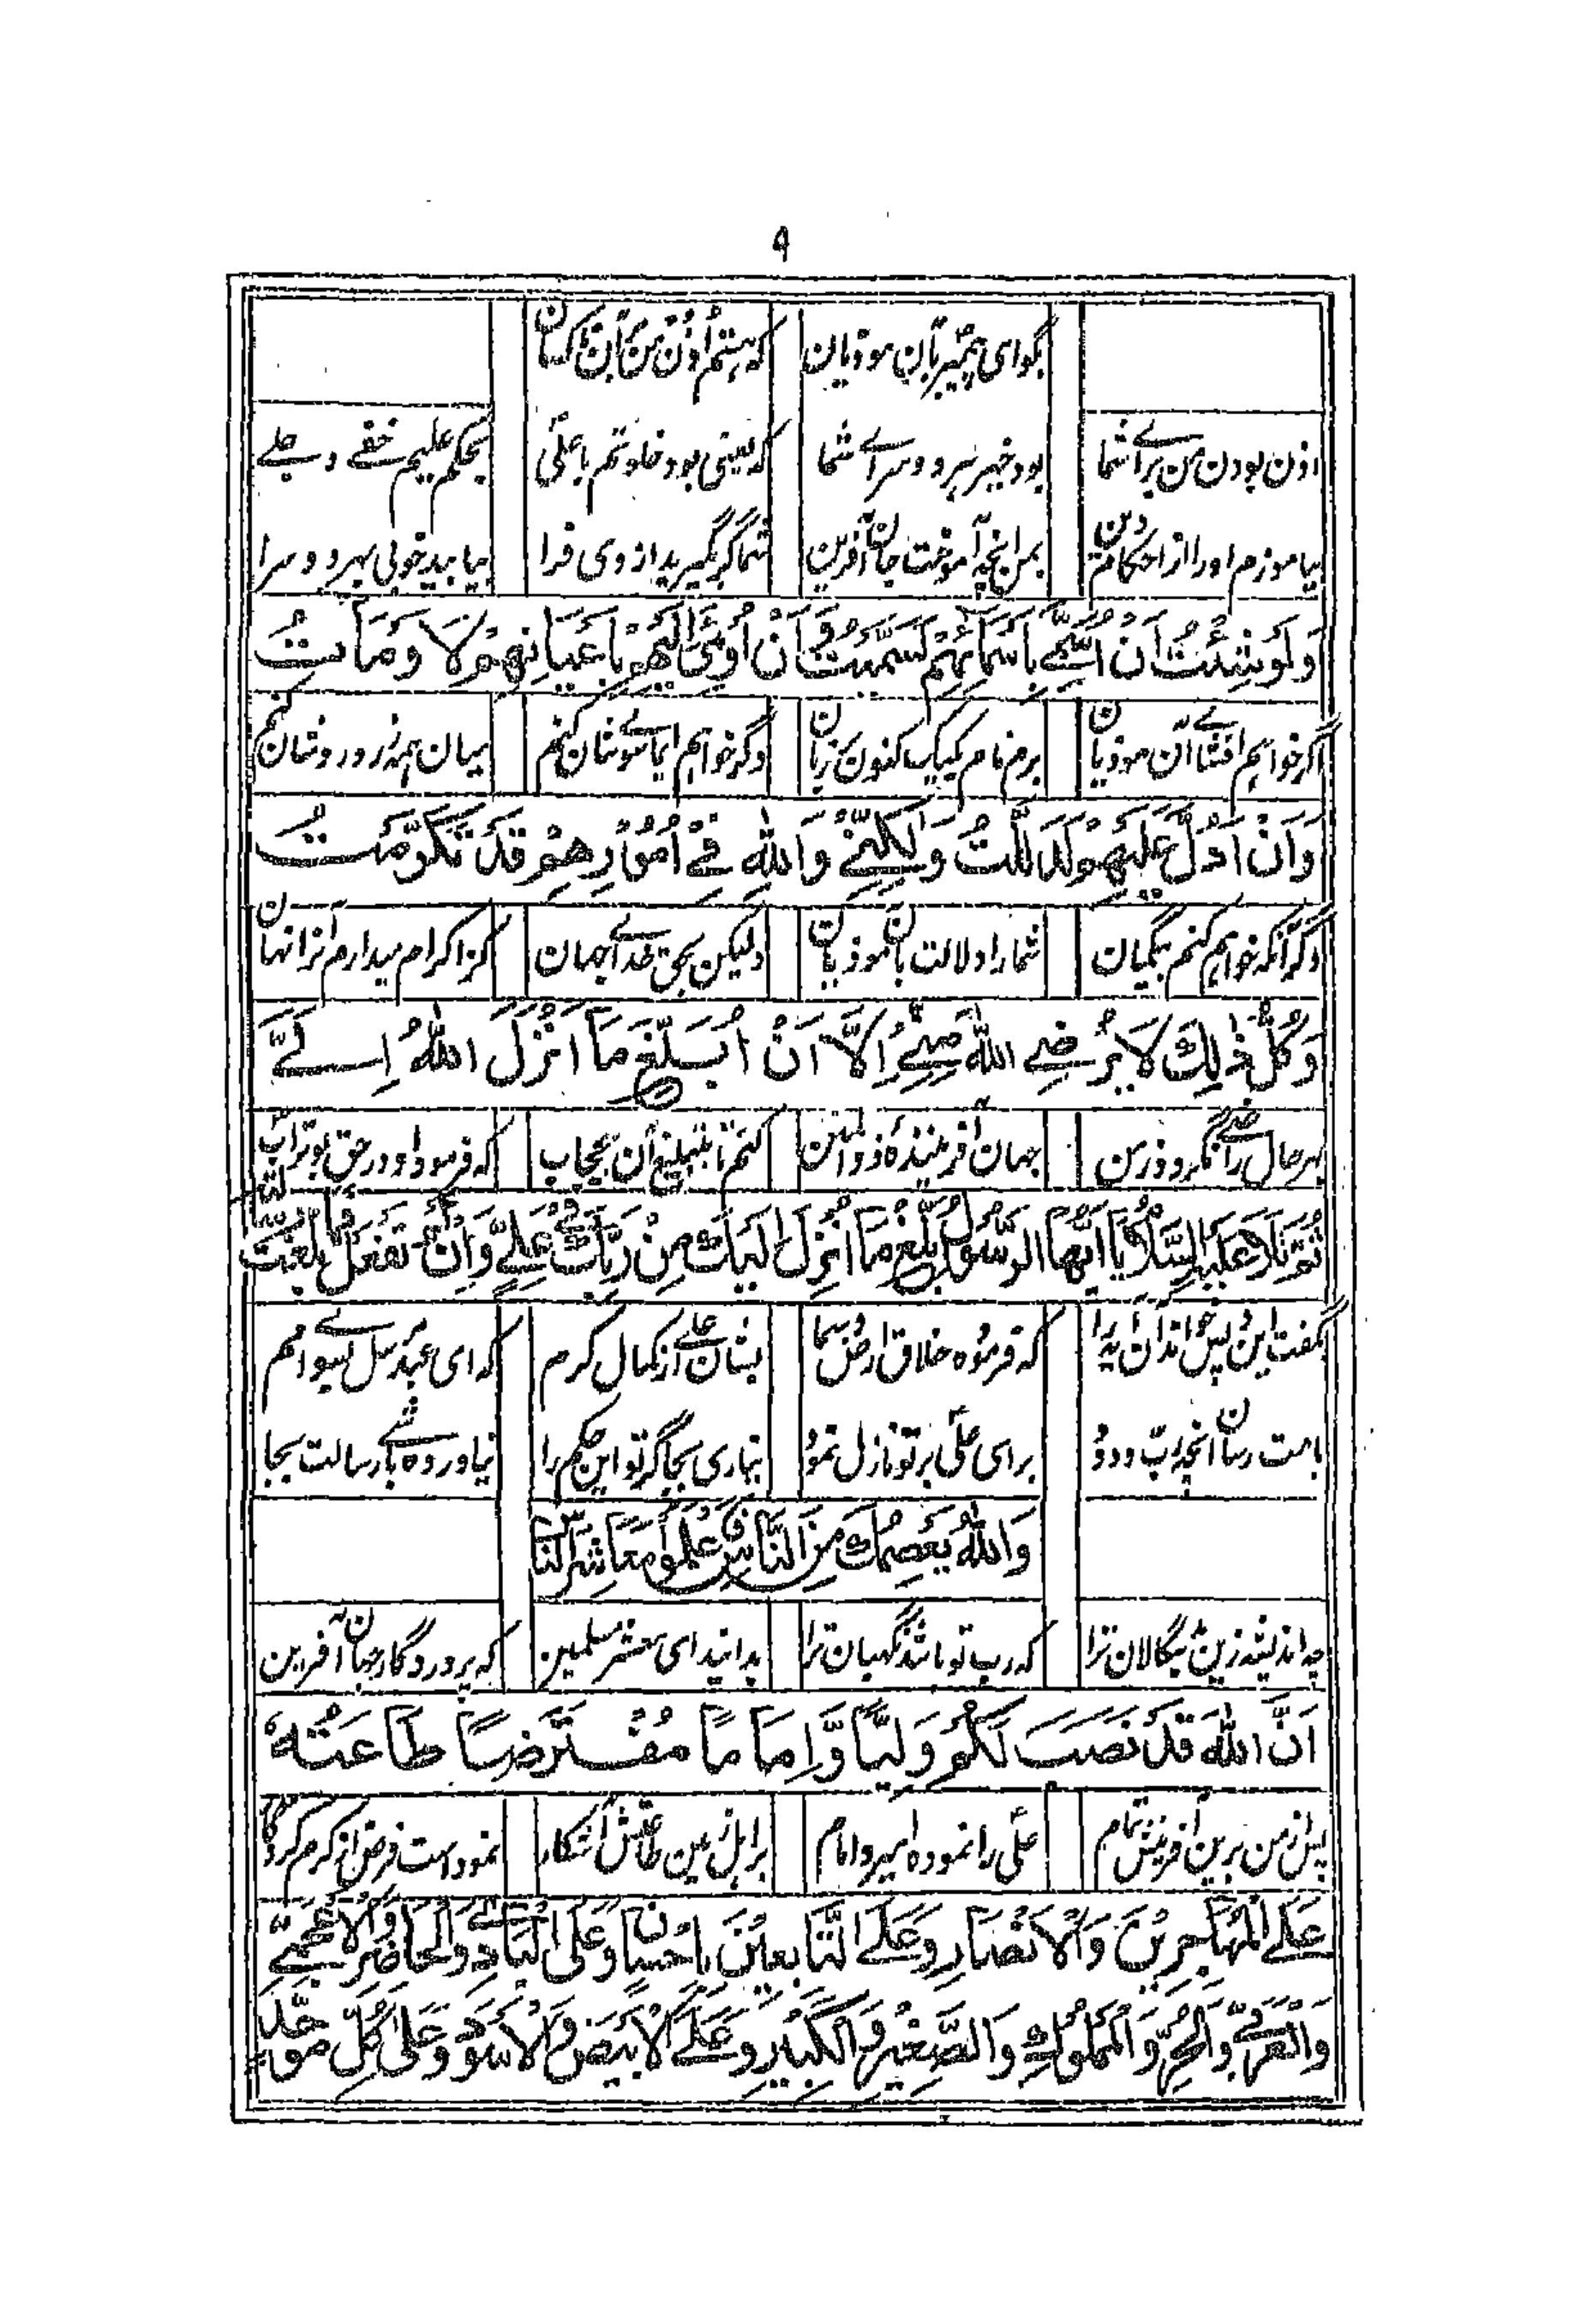 ۹
بگو ای پیمبر بآن موذیان که هستم اذن من بآن ناکسان
اذن بودن من برائے شما بود خیر بهر دو سرائے شما که یعنی بود خلوتم با علیؑ بحکم علیم خفے و جلے
بیاموزم او را از احکام دین بمن آنچه آموخت جان آفرین شما گر بگیرید از وی فرا بیابید خوبی بهر دو سرا
وَلَوْ شِئْتُ اَنْ اُسَمِّیَ بِاَسْمَائِهِمْ لَسَمَّیْتُ وَ اَنْ اُوْمِیَ اِلَیْهِمْ بِاَعْیَانِهِمْ لَاَوْمَأْتُ
اگر خواهم افشائے آن موذیان برم نام یکیک کنون بر زبان وگر خواهم ایمائے سوشان کنم بیان همه زور و شان کنم
وَاَنْ اَدُلَّ عَلَیْهِمْ لَدَلَلْتُ وَلٰکِنِّیْ وَاللهِ فِیْ اُمُوْرِهِمْ قَدْ تَکَرَّمْتُ
وگر آنکه خواهم کنم بیگمان شما را دلالت بآن موذیان ولیکن بحق خدائے جهان کز اکرام میدارم آنرا نهان
وَکُلُّ ذٰلِكَ لَا یَرْضَے اللهُ مِنِّیْ اِلَّا اَنْ اُبَلِّغَ مَا اَنْزَلَ اللهُ اِلَیَّ
بهر حال راضے نگردد ز من جهان آفریننده ذو المنن کنم تا بتبلیغ آن بیحجاب که فرمود او در حق بوترابؑ
ثُمَّ تَلَا عَلَیْهِ السَّلَامُ یَا اَیُّهَا الرَّسُوْلُ بَلِّغْ مَا اُنْزِلَ اِلَیْكَ مِنْ رَبِّكَ فِیْ عَلِیٍّ وَاِنْ لَمْ تَفْعَلْ فَمَا بَلَّغْتَ رِسَالَتَهُ
بگفت این و پس خواند آن آیه را که فرموده خلاق ارض و سما بشان علے از کمال کرم که ای عبد مرسل بسوے امم
بامت رسان آنچه رب ودود برای علیؑ بر تو نازل نمود نیاری بجا گر تو این حکم را نیاورده شے با رسالت بجا
وَاللهُ یَعْصِمُكَ مِنَ النَّاسِ فَاعْلَمُوْا مَعَاشِرَ النَّاسِ
چه اندیشه زین بدسگالان ترا که رب تو باشد نگهبان ترا بدانید ای معشر مسلمین که پروردگار جهان آفرین
اَنَّ اللهَ قَدْ نَصَبَ لَکُمْ وَلِیًّا وَّاِمَامًا مُفْتَرَضًا طَاعَتُهٗ
پس از من برین آفرینش تمام علیؑ را نموده امیر و امام بر اهل زمین طاعتش آشکار نمود است فرض از کرم کردگار
عَلَے الْمُهَاجِرِیْنَ وَالْاَنْصَارِ وَعَلَے التَّابِعِیْنَ بِاِحْسَانٍ وَعَلَی الْبَادِیْ وَالْحَاضِرِ وَالْاَعْجَمِیِّ
وَالْعَرَبِیِّ وَالْحُرِّ وَالْمَمْلُوْكِ وَالصَّغِیْرِ وَالْکَبِیْرِ وَعَلَے الْاَبْیَضِ وَالْاَسْوَدِ وَعَلٰی کُلِّ مُوَحِّدٍ